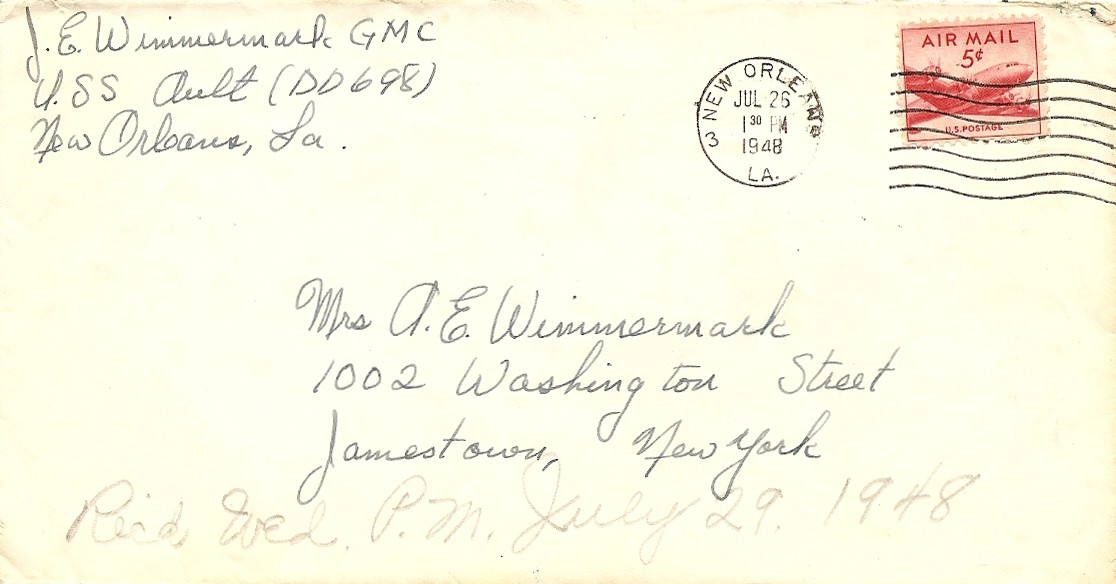 J. E. Wimmermark GMC
U.S.S Ault (DD698)
New Orleans, La.
NEW ORLEANS
3
JUL 26
1 30 PM
1948
LA.
AIR MAIL
5¢
U.S. POSTAGE
Mrs A. E. Wimmermark
1002 Washington Street
Jamestown, New York
Rec'd Wed. P.M. July 29. 1948